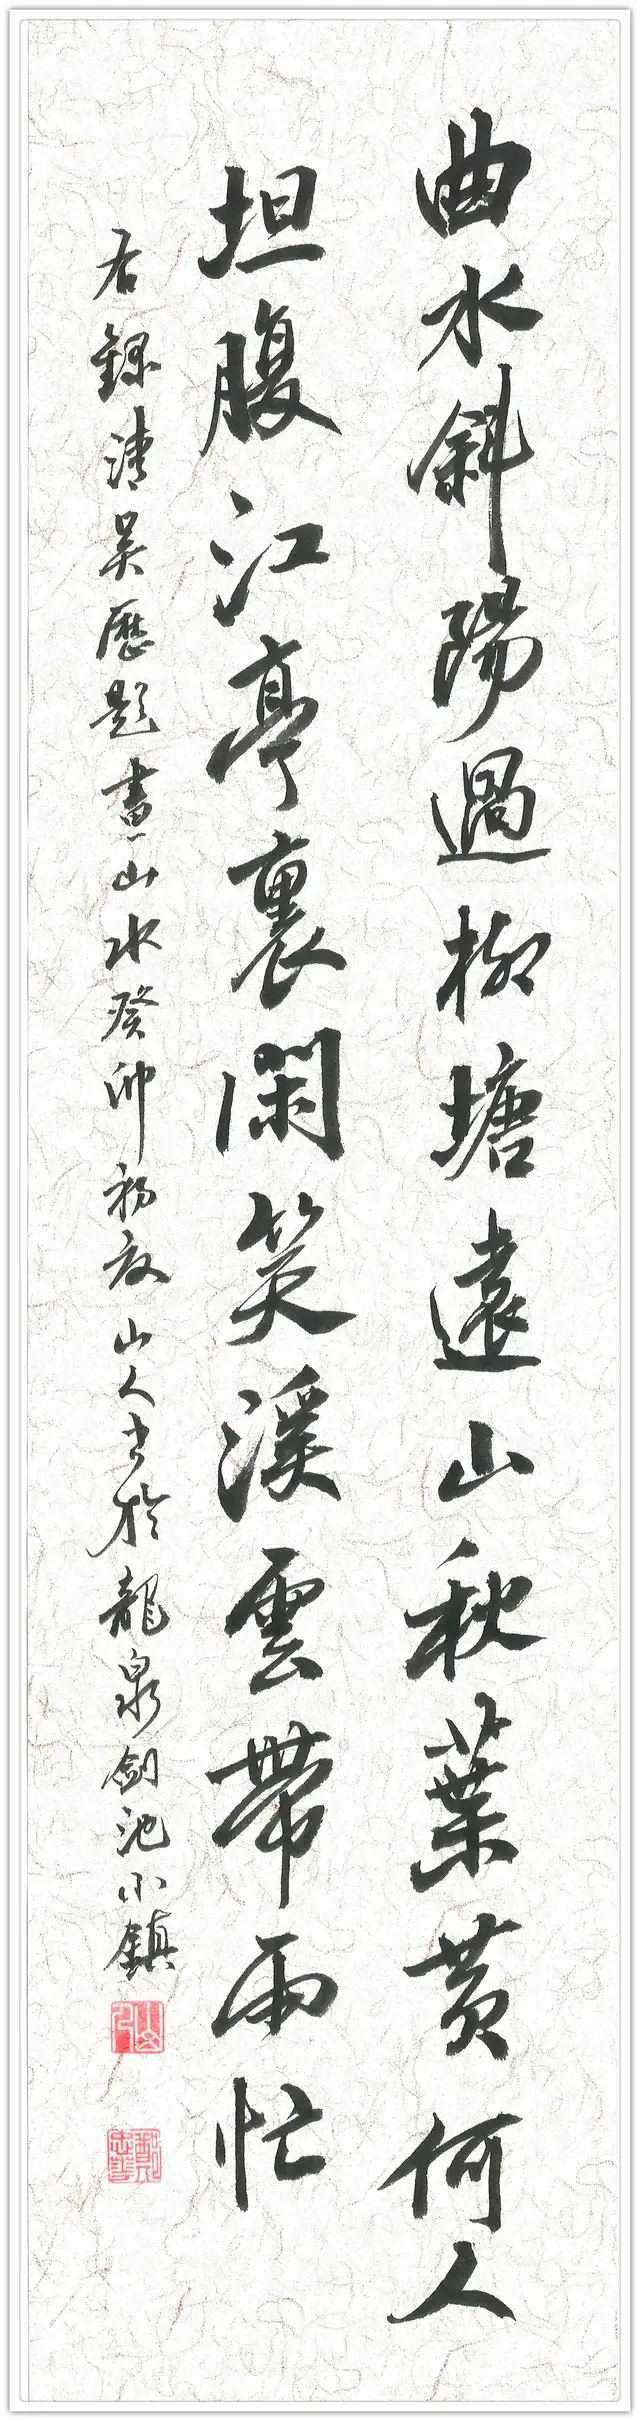 曲水斜陽過柳塘遠山秋葉黄何人
坦腹江亭裏閑笑溪雲帶雨忙
右錄清吴歷題畫山水癸卯初夏山人書於龍泉劍池小鎮